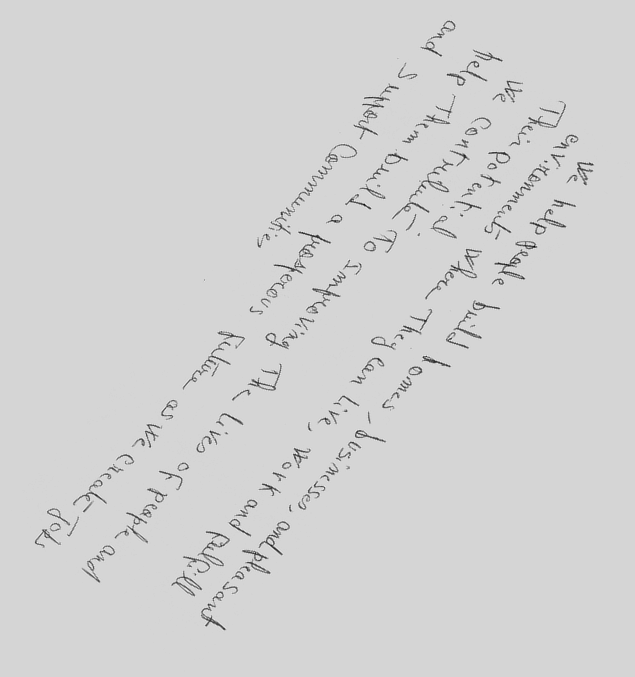 We help people build homes, businesses, and pleasant
environments where They can live, work and fulfill
Their potential.
We contribute To Improving The lives of people and
help Them build a prosperous future as we create Jobs
and support Communities